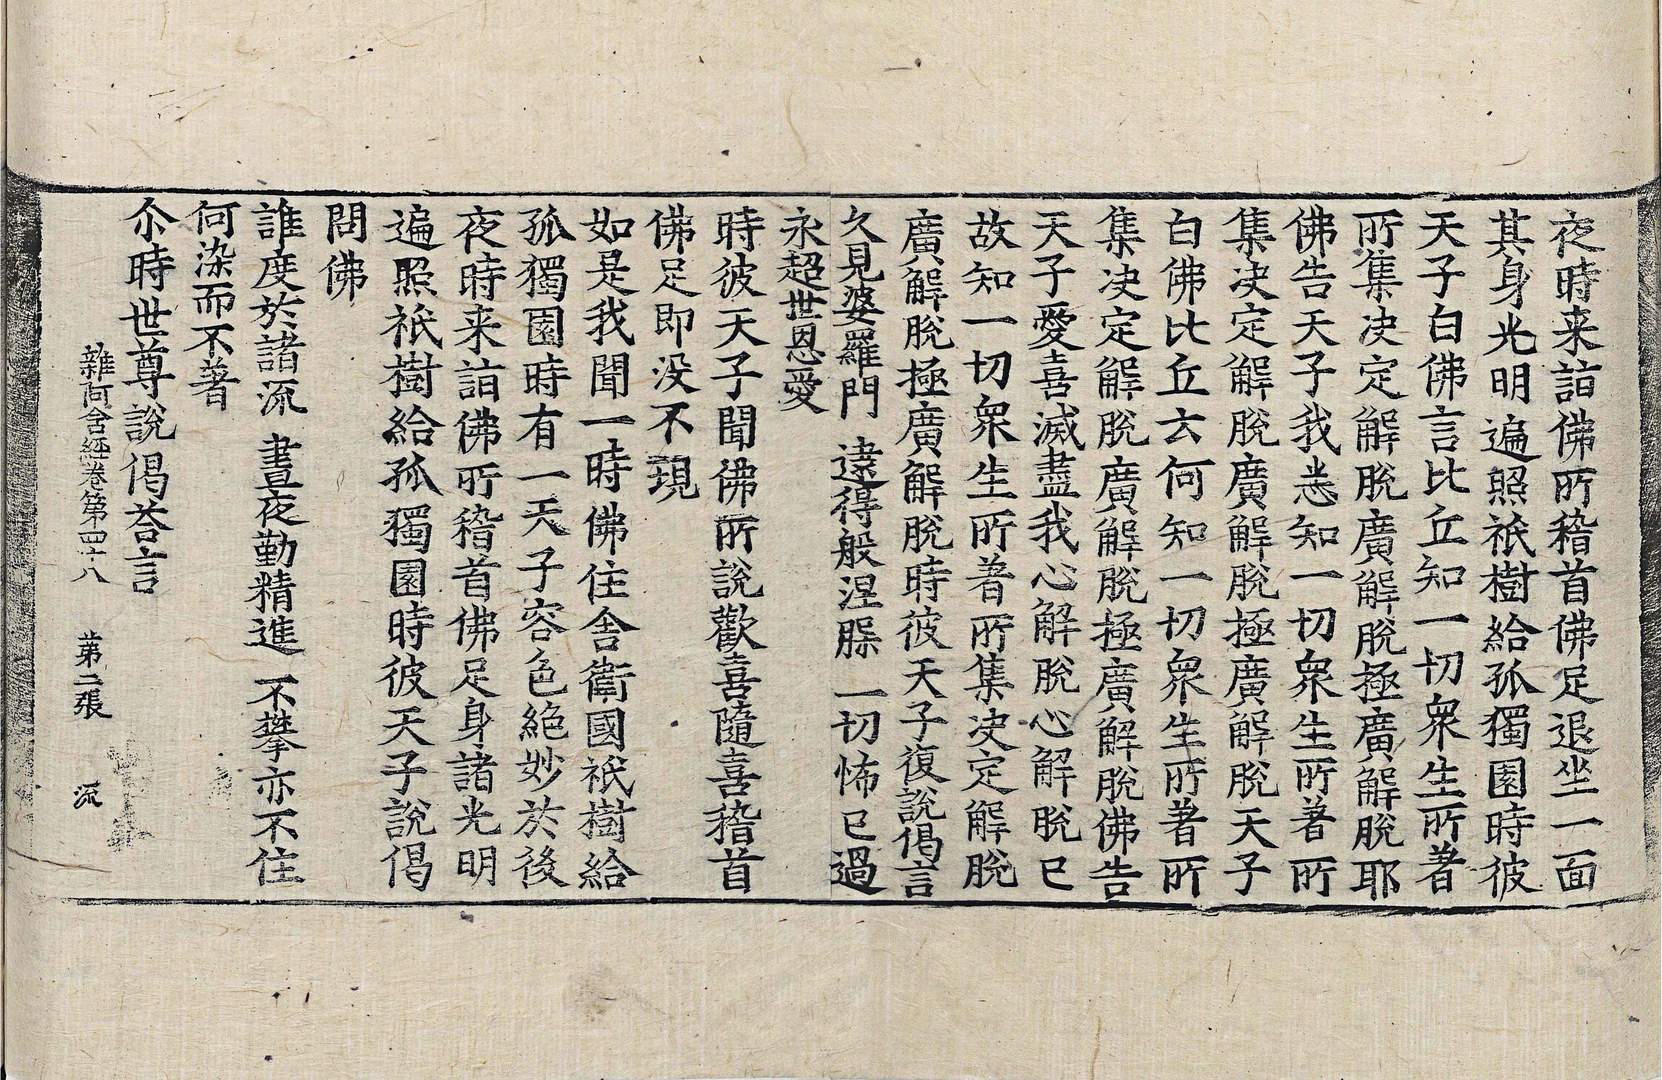 夜時来詣佛所稽首佛足退坐一面
其身光明遍照祇樹給孤獨園時彼
天子白佛言比丘知一切衆生所著
所集决定解脫廣解脫極廣解脫耶
佛告天子我悉知一切衆生所著所
集决定解脫廣解脫極廣解脫天子
白佛比丘云何知一切衆生所著所
集决定解脫廣解脫極廣解脫佛告
天子愛喜滅盡我心解脫心解脫已
故知一切衆生所著所集决定解脫
廣解脫極廣解脫時彼天子復說偈言
久見婆羅門 逮得般涅槃 一切怖已過
永超世恩愛
時彼天子聞佛所說歡喜隨喜稽首
佛足即没不現
如是我聞一時佛住舍衛國祇樹給
孤獨園時有一天子容色絶妙於後
夜時来詣佛所稽首佛足身諸光明
遍照祇樹給孤獨園時彼天子說偈
問佛
誰度於諸流 晝夜勤精進 不攀亦不住
何染而不著
尒時世尊說偈荅言
雜阿含經卷第四十八 第二張 流